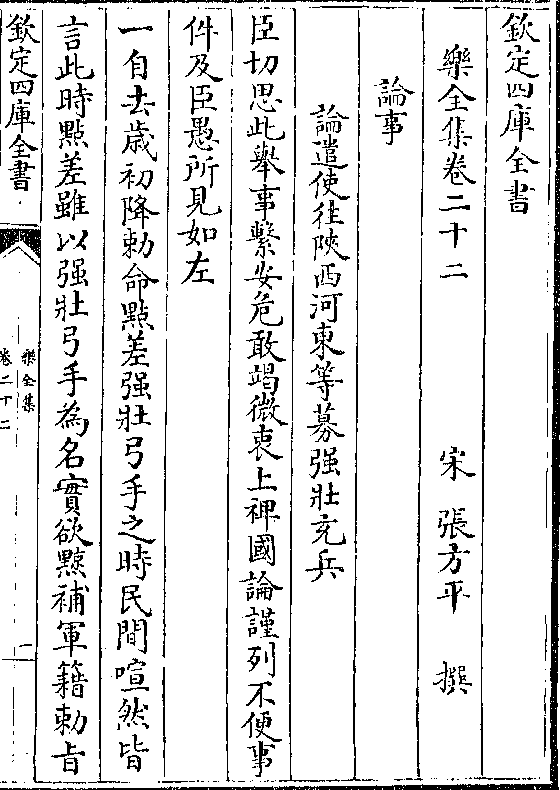 欽定四庫全書
樂全集卷二十二
宋 張方平 撰
論事
論遣使往陝西河東等募强壯充兵
臣切思此舉事繫安危敢竭微衷上裨國論謹列不便事
件及臣愚所見如左
一自去歲初降勅命點差强壯弓手之時民間喧然皆
言此時點差雖以强壯弓手為名實欲㸃補軍籍勅㫖
欽定四庫全書
樂全集
卷二十二
一